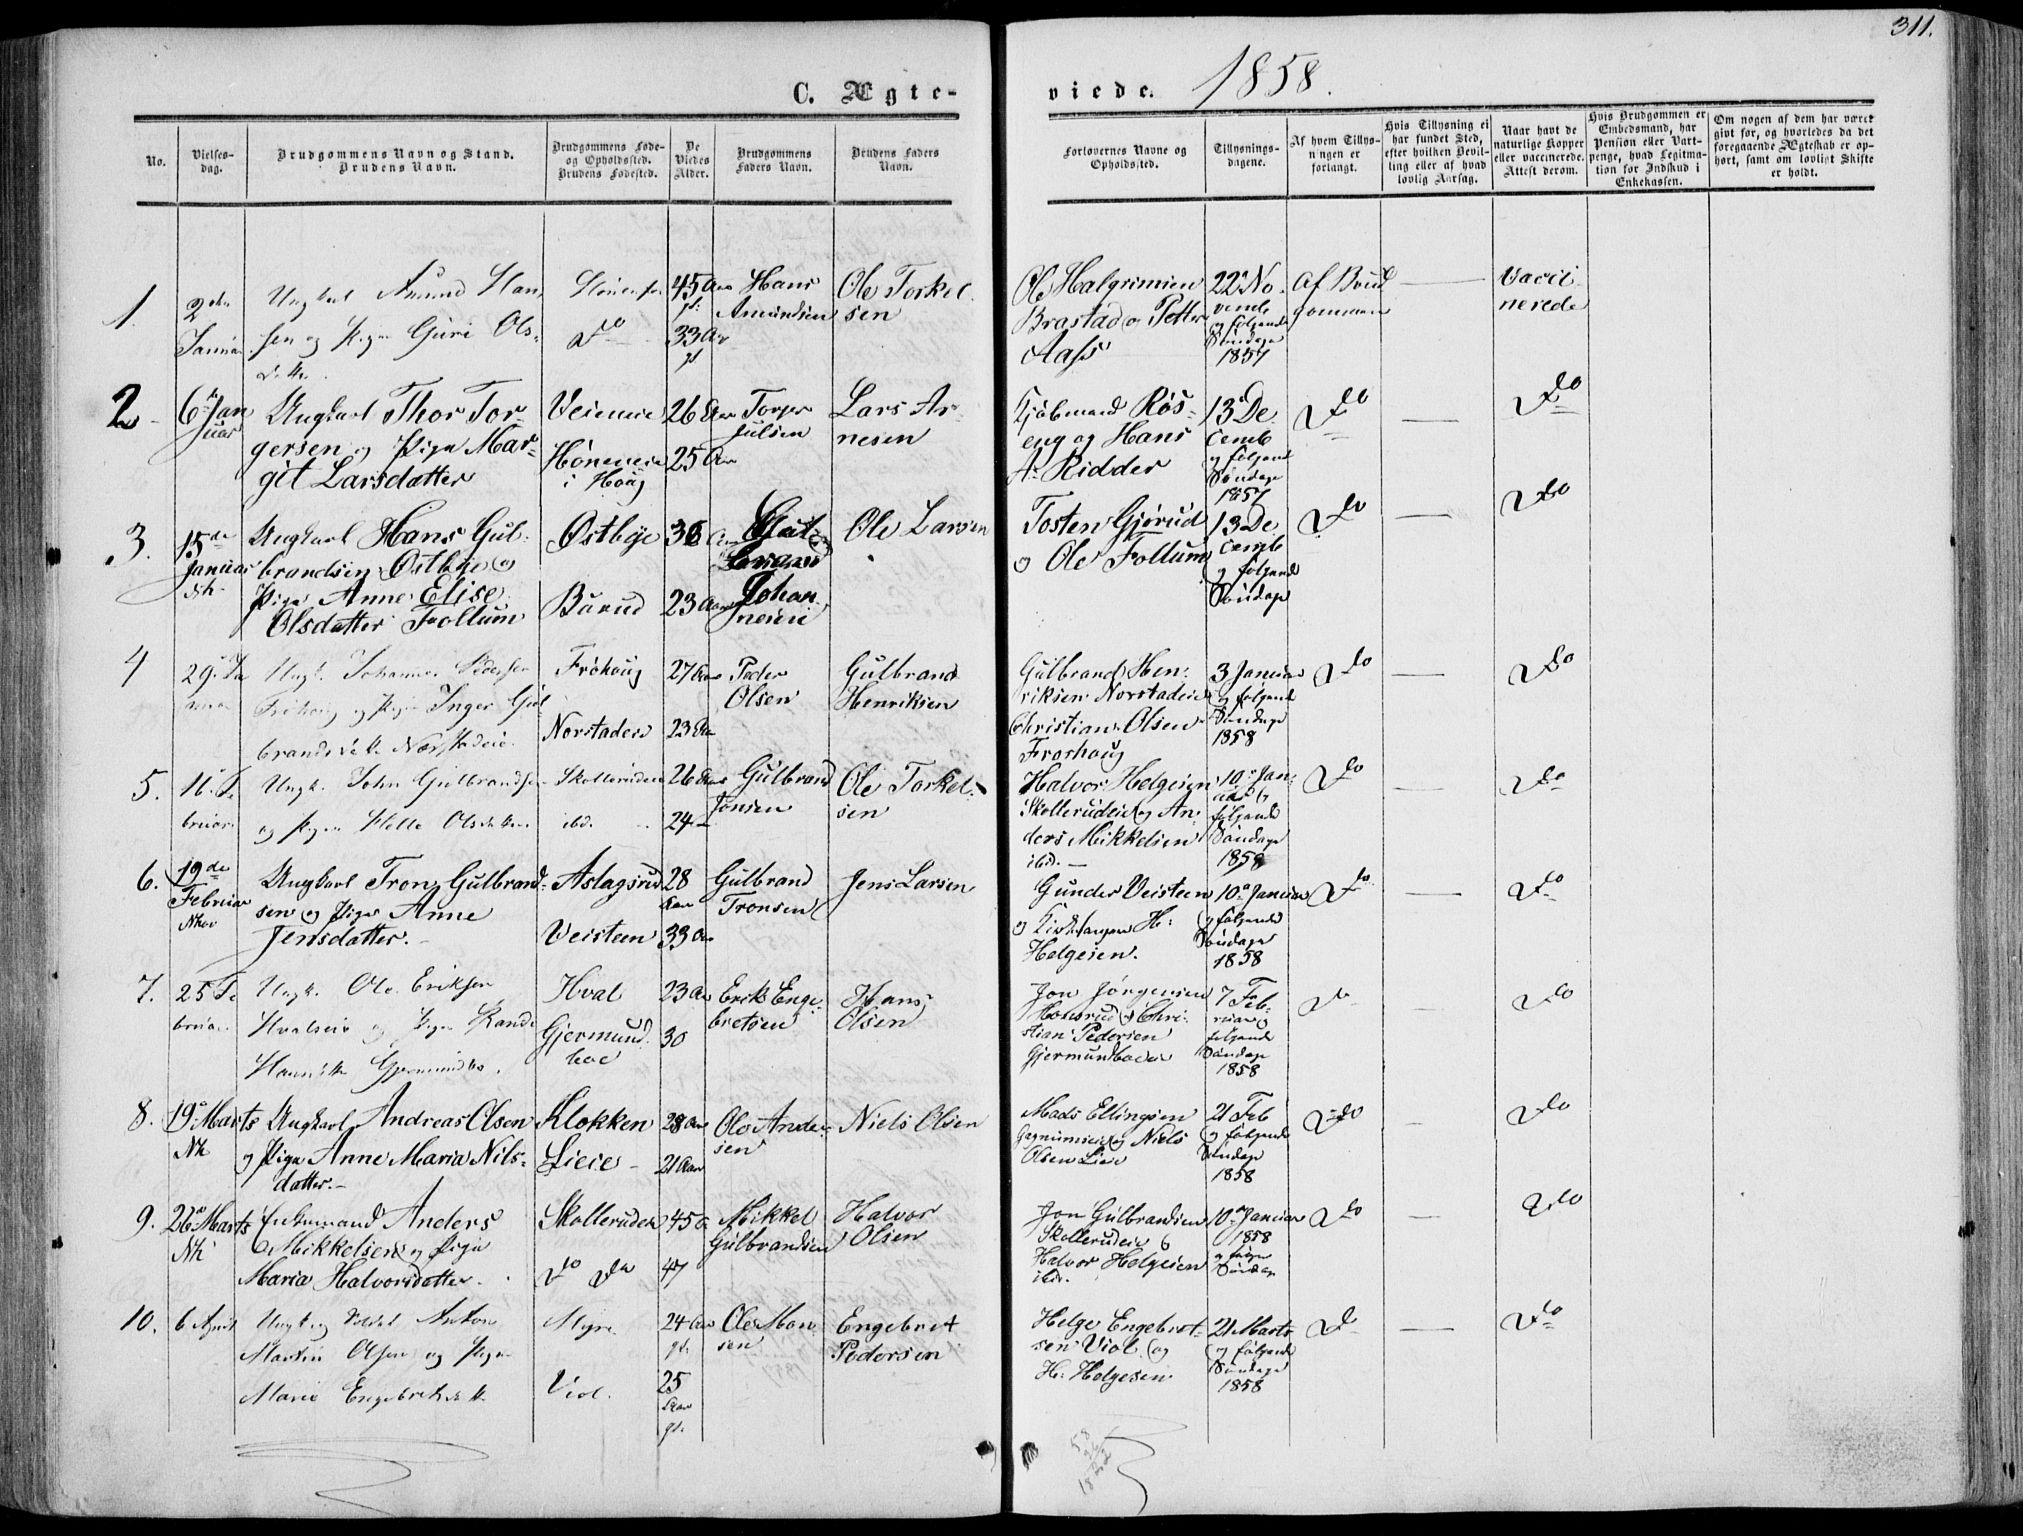 311.
C. Ægte-
viede. 1858.
No.
Vielses-
dag.
Brudgommens Navn og Stand.
Brudens Navn.
Brudgommens Føde-
og Opholdssted.
Brudens Fødested.
De
Viedes
Alder.
Brudgommens
Faders Navn.
Brudens Faders
Navn.
Forlovernes Navne og
Opholdssted.
Tillysnings-
dagene.
Af hvem Tillys-
ningen er
forlangt.
Hvis Tillysning ei
har fundet Sted,
efter hvilken Bevil-
ling eller af hvad
lovlig Aarsag.
Naar havt de
naturlige Kopper
eller vaccinerede.
Attest derom.
Hvis Brudgommen er
Embedsmand, har
Pension eller Vart-
penge, hvad Legitima-
tion for Indskud i
Enkekassen.
Om nogen af dem har været
givt før, og hvorledes da det
foregaaende Ægteskab er op-
hørt, samt om lovligt Skifte
er holdt.
1.
2den
Januar
Ungkarl Amund Han-
sen og Pige Guri Ols-
datter
Do
45 Aar
gl.
33 Aar
gl
Hans
Amundsen
Ole Torkel-
sen
Ole Halgrimsen
Brastad og Petter
Aass
22 No-
vemb
og følgende
Søndage
1857
Af Brud
gommen
Vacci
nerede
2
6 Jan
uar
Ungkarl Thor Tor-
gersen og Pige Mar-
git Larsdatter
Veieneie
Høneneie
i Houg
26 Aar
25 Aar
Torger
Julsen
Lars Ar-
nesen
Kjøbmand Røs-
eng og Hans
A. Ridder
13 De
cemb
og følgende
Søndage
1857
Do
Do
3.
15de
Januar
Nk.
Ungkarl Hans Gul-
brandsen Østbye og
Pige Anne Elise
Olsdatter Follum
Østbye
Burud
36 Aar
23 Aar
Gul-
brand
Johan
nesen
Ole Larsen
Tosten Gjørud
og Ole Follum
13 De
cemb
og følgende
Søndage
Do
Do
4
29 Ja
nuar
Ungk. Johannes Pedersen
Frøhoug og Pige Inger Gul
brandsdatter Norstadeie.
Frøhoug
Norstadeie
27 Aar
23 Aar
Peder
Olsen
Gulbrand
Henriksen
Gulbrand Hen-
riksen Norstadeie
Christian Olsen
Frøshoug
3 Januar
og følgende
Søndage
1858
Do
Do
5.
11. Fe
bruar
Ungk. John Gulbrandsen
og Pigen Helle Olsdatter
Skollerudeie
ibd.
26 Aar
24
Gulbrand
Jonsen
Ole Torkel-
sen
Halvor Helgesen
Skollerudeie og An-
ders Mikkelsen
ibd.
10 Jan-
uar og
følgende
Søndage
1858
Do
Do
6.
19de
Februar
Ungkarl Tron Gulbrand-
sen og Pige Anne
Jensdatter.
Aslagsrud
Veisteen
28
Aar
33 Aar
Gulbrand
Tronsen
Jens Larsen
Gunder Veisteen
og Kirkesanger H.
Helgesen.
10 Januar
og følgende
Søndage
1858
Do
Do
7.
25 Fe
bruar
Ungk. Ole Eriksen
Hvalseie og Pigen Randi
Hansdtr Gjermundbo.
Hval
Gjermund
boe
23 Aar
30
Erik Enge-
bretsen
Hans
Olsen
Jon Jørgensen
Honsrud og Chri-
stian Pedersen
Gjermundboeie
7 Feb-
ruar og
følgende
Søndage
1858
Do
Do
8.
19 Marts
Nk
Ungkarl Andreas Olsen
og Pige Anne Maria Nils-
datter.
Klokken
Lieie
28 Aar
21 Aar
Ole Ander-
sen
Niels Olsen
Mads Ellingsen
og Niels
Olsen Lieie
21 Feb
og følgende
Søndage
1858
Do
Do
9.
26 Marts
Nk
Enkemand Anders
Mikkelsen og Pige
Maria Halvorsdatter.
Skollerudeie
Do Do
45 Aar
47
Mikkel
Gulbrandsen
Halvor
Olsen
Jon Gulbrandsen
Skollerudeie og
Halvor Helgesen
ibd.
10 Januar
1858
og følgende
Søndage
Do
Do
10.
6 April
Ungk og Soldat Anton
Martin Olsen og Pigen
Marie Engebretsdatter
Myre
Viol.
24 Aar
gl.
25
Aar
gl.
Ole Mon-
sen
Engebret
Pedersen
Helge Engebret-
sen Viol og
H. Helgesen
21 Marts
og følgende
Søndage
1858
Do
Do
58